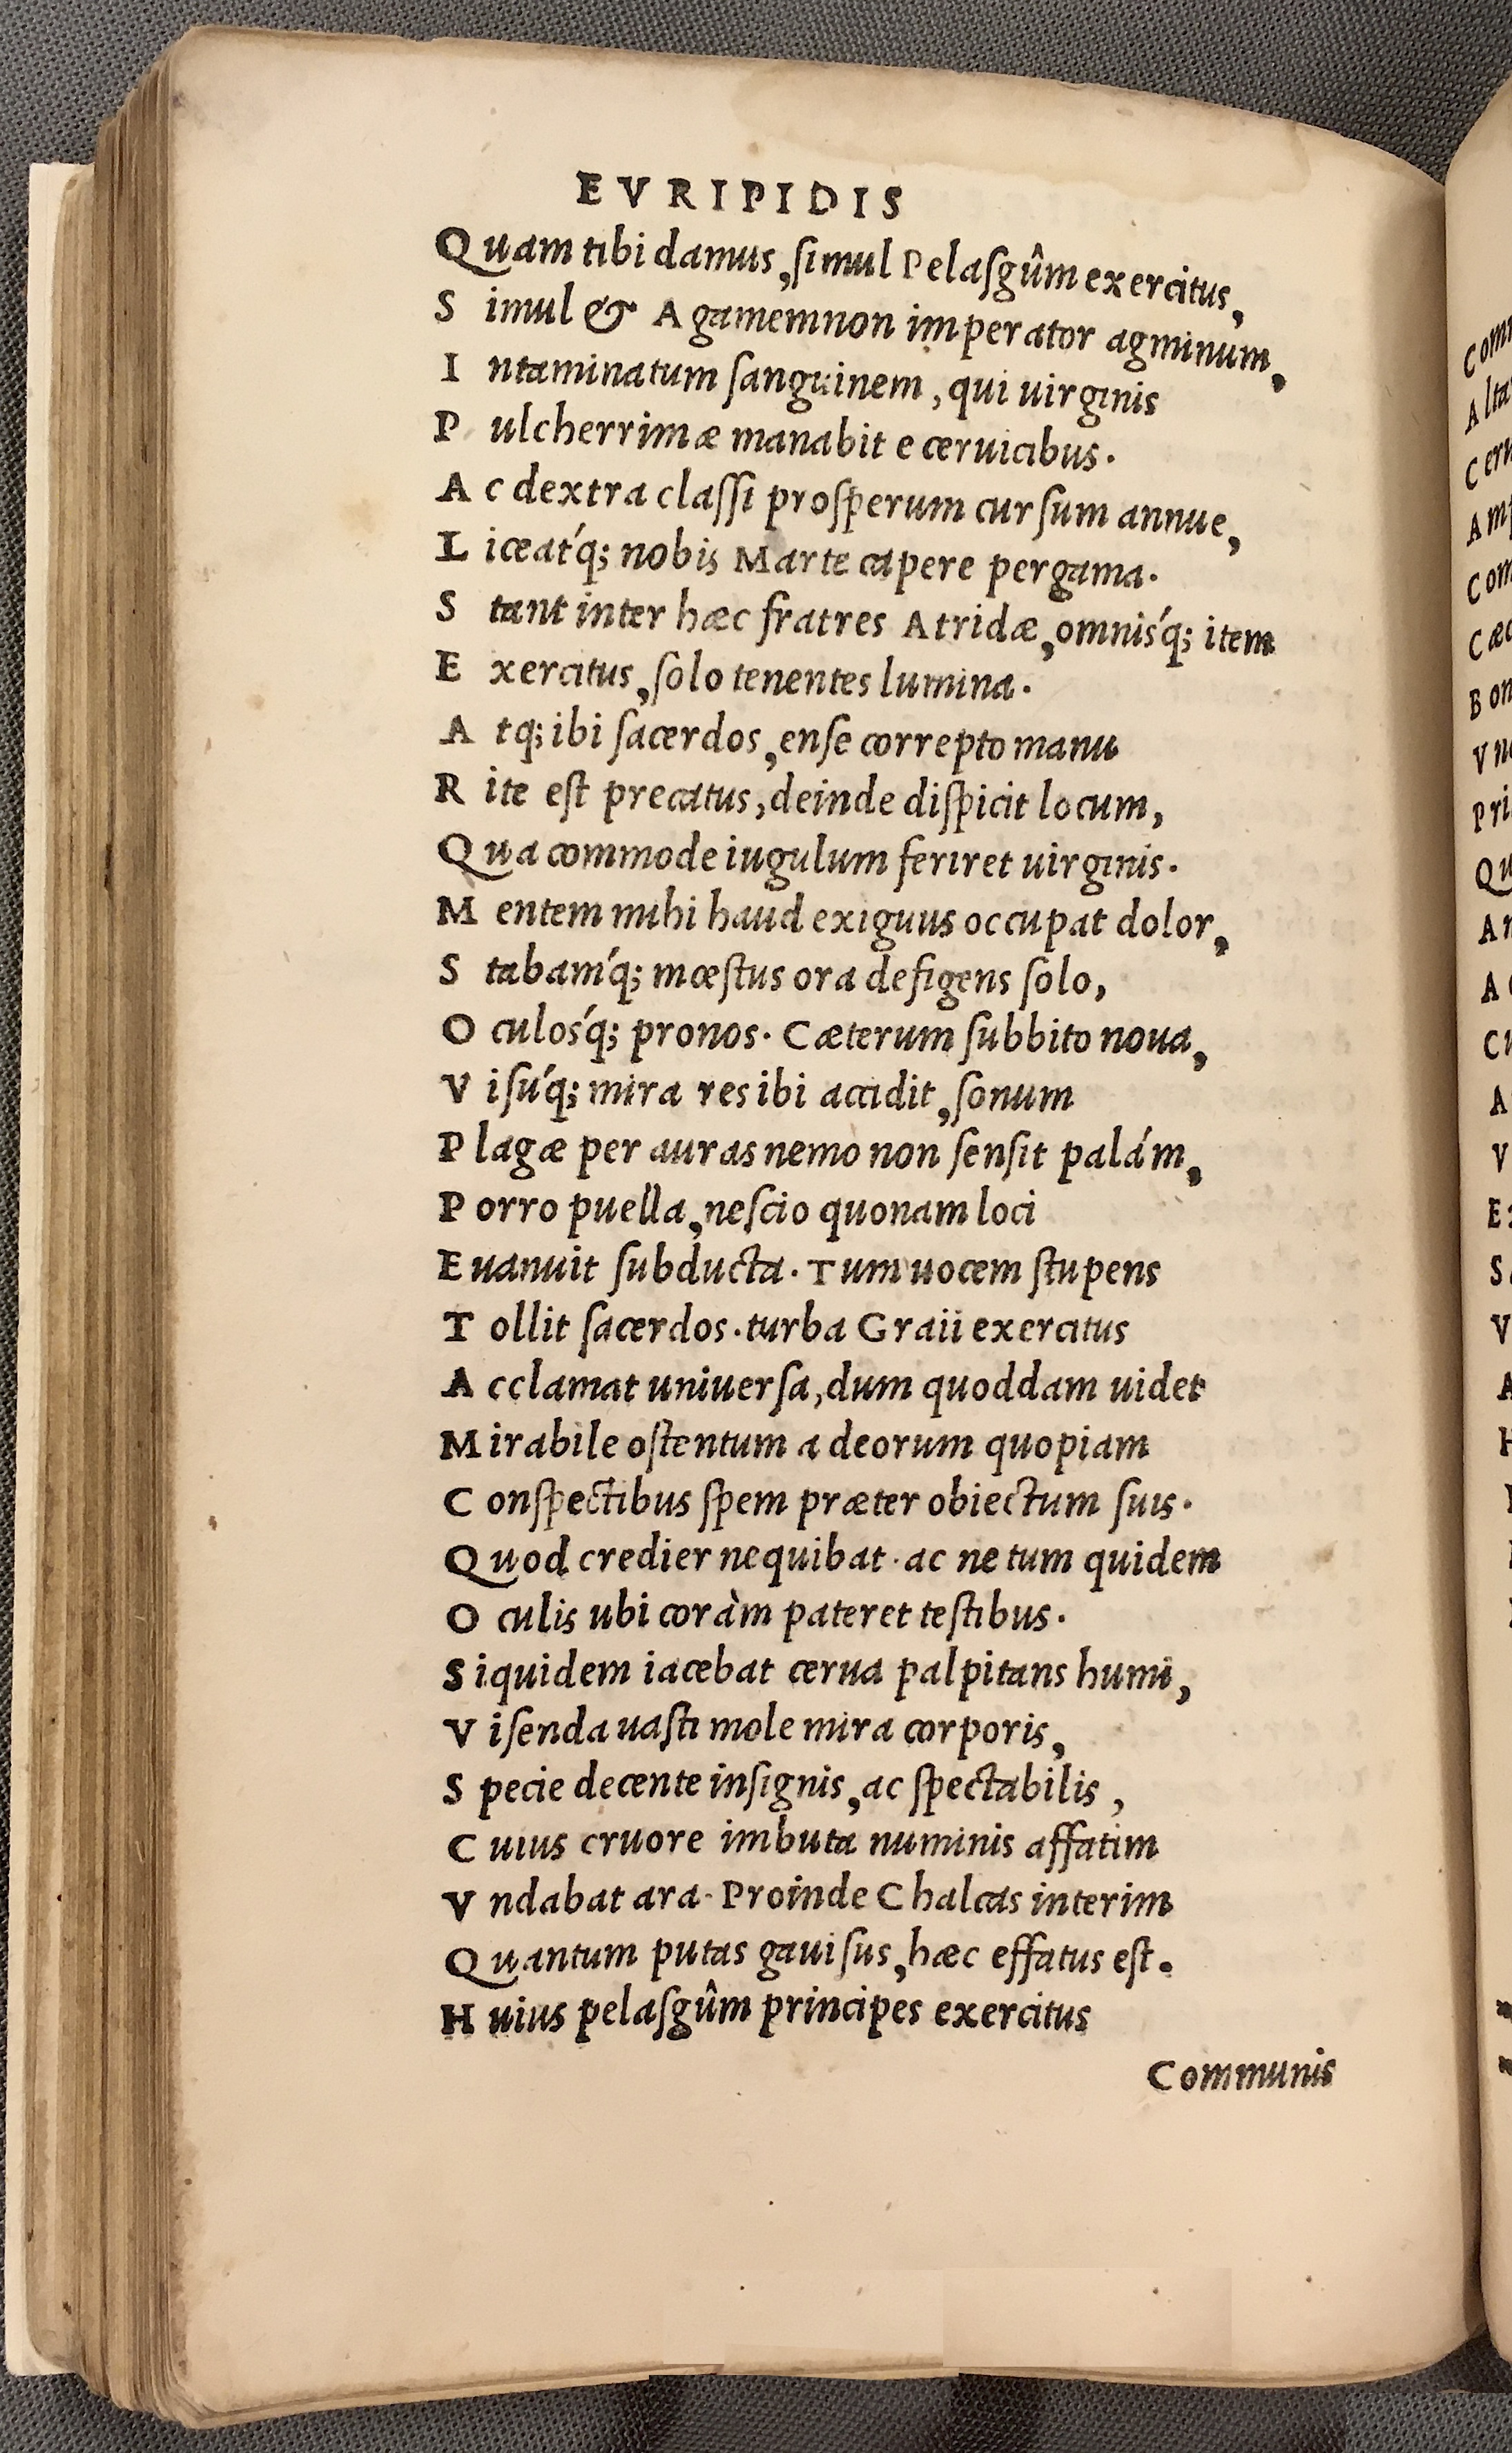 EVRIPIDIS
Quam tibi damus, ſimul Pelaſgûm exercitus,
Simul & Agamemnon imperator agminum,
Intaminatum ſanguinem, qui uirginis
Pulcherrimæ manabit e ceruicibus.
Ac dextra claſſi proſperum curſum annue,
Liceat́q; nobis Marte capere pergama.
Stant inter hæc fratres Atridæ, omniś́q; item
Exercitus, ſolo tenentes lumina.
Atq; ibi ſacerdos, enſe correpto manu
Rite eſt precatus, deinde diſpicit locum,
Qua commode iugulum feriret uirginis.
Mentem mihi haud exiguus occupat dolor,
Stabaḿq; mœſtus ora defigens ſolo,
Oculoś́q; pronos. Cæterum ſubbito noua,
Viſú́q; mira res ibi accidit, ſonum
Plagæ per auras nemo non ſenſit palám,
Porro puella, neſcio quonam loci
Euanuit ſubducta. Tum uocem ſtupens
Tollit ſacerdos. turba Graii exercitus
Acclamat uniuerſa, dum quoddam uidet
Mirabile oſtentum a deorum quopiam
Conſpectibus ſpem præter obiectum ſuis.
Quod credier nequibat. ac ne tum quidem
Oculis ubi coràm pateret teſtibus.
Siquidem iacebat cerua palpitans humi,
Viſenda uaſti mole mira corporis,
Specie decente inſignis, ac ſpectabilis,
Cuius cruore imbuta numinis affatim
Vndabat ara. Proinde Chalcas interim
Quantum putas gauiſus, hæc effatus eſt.
Huius pelaſgûm principes exercitus
Communis